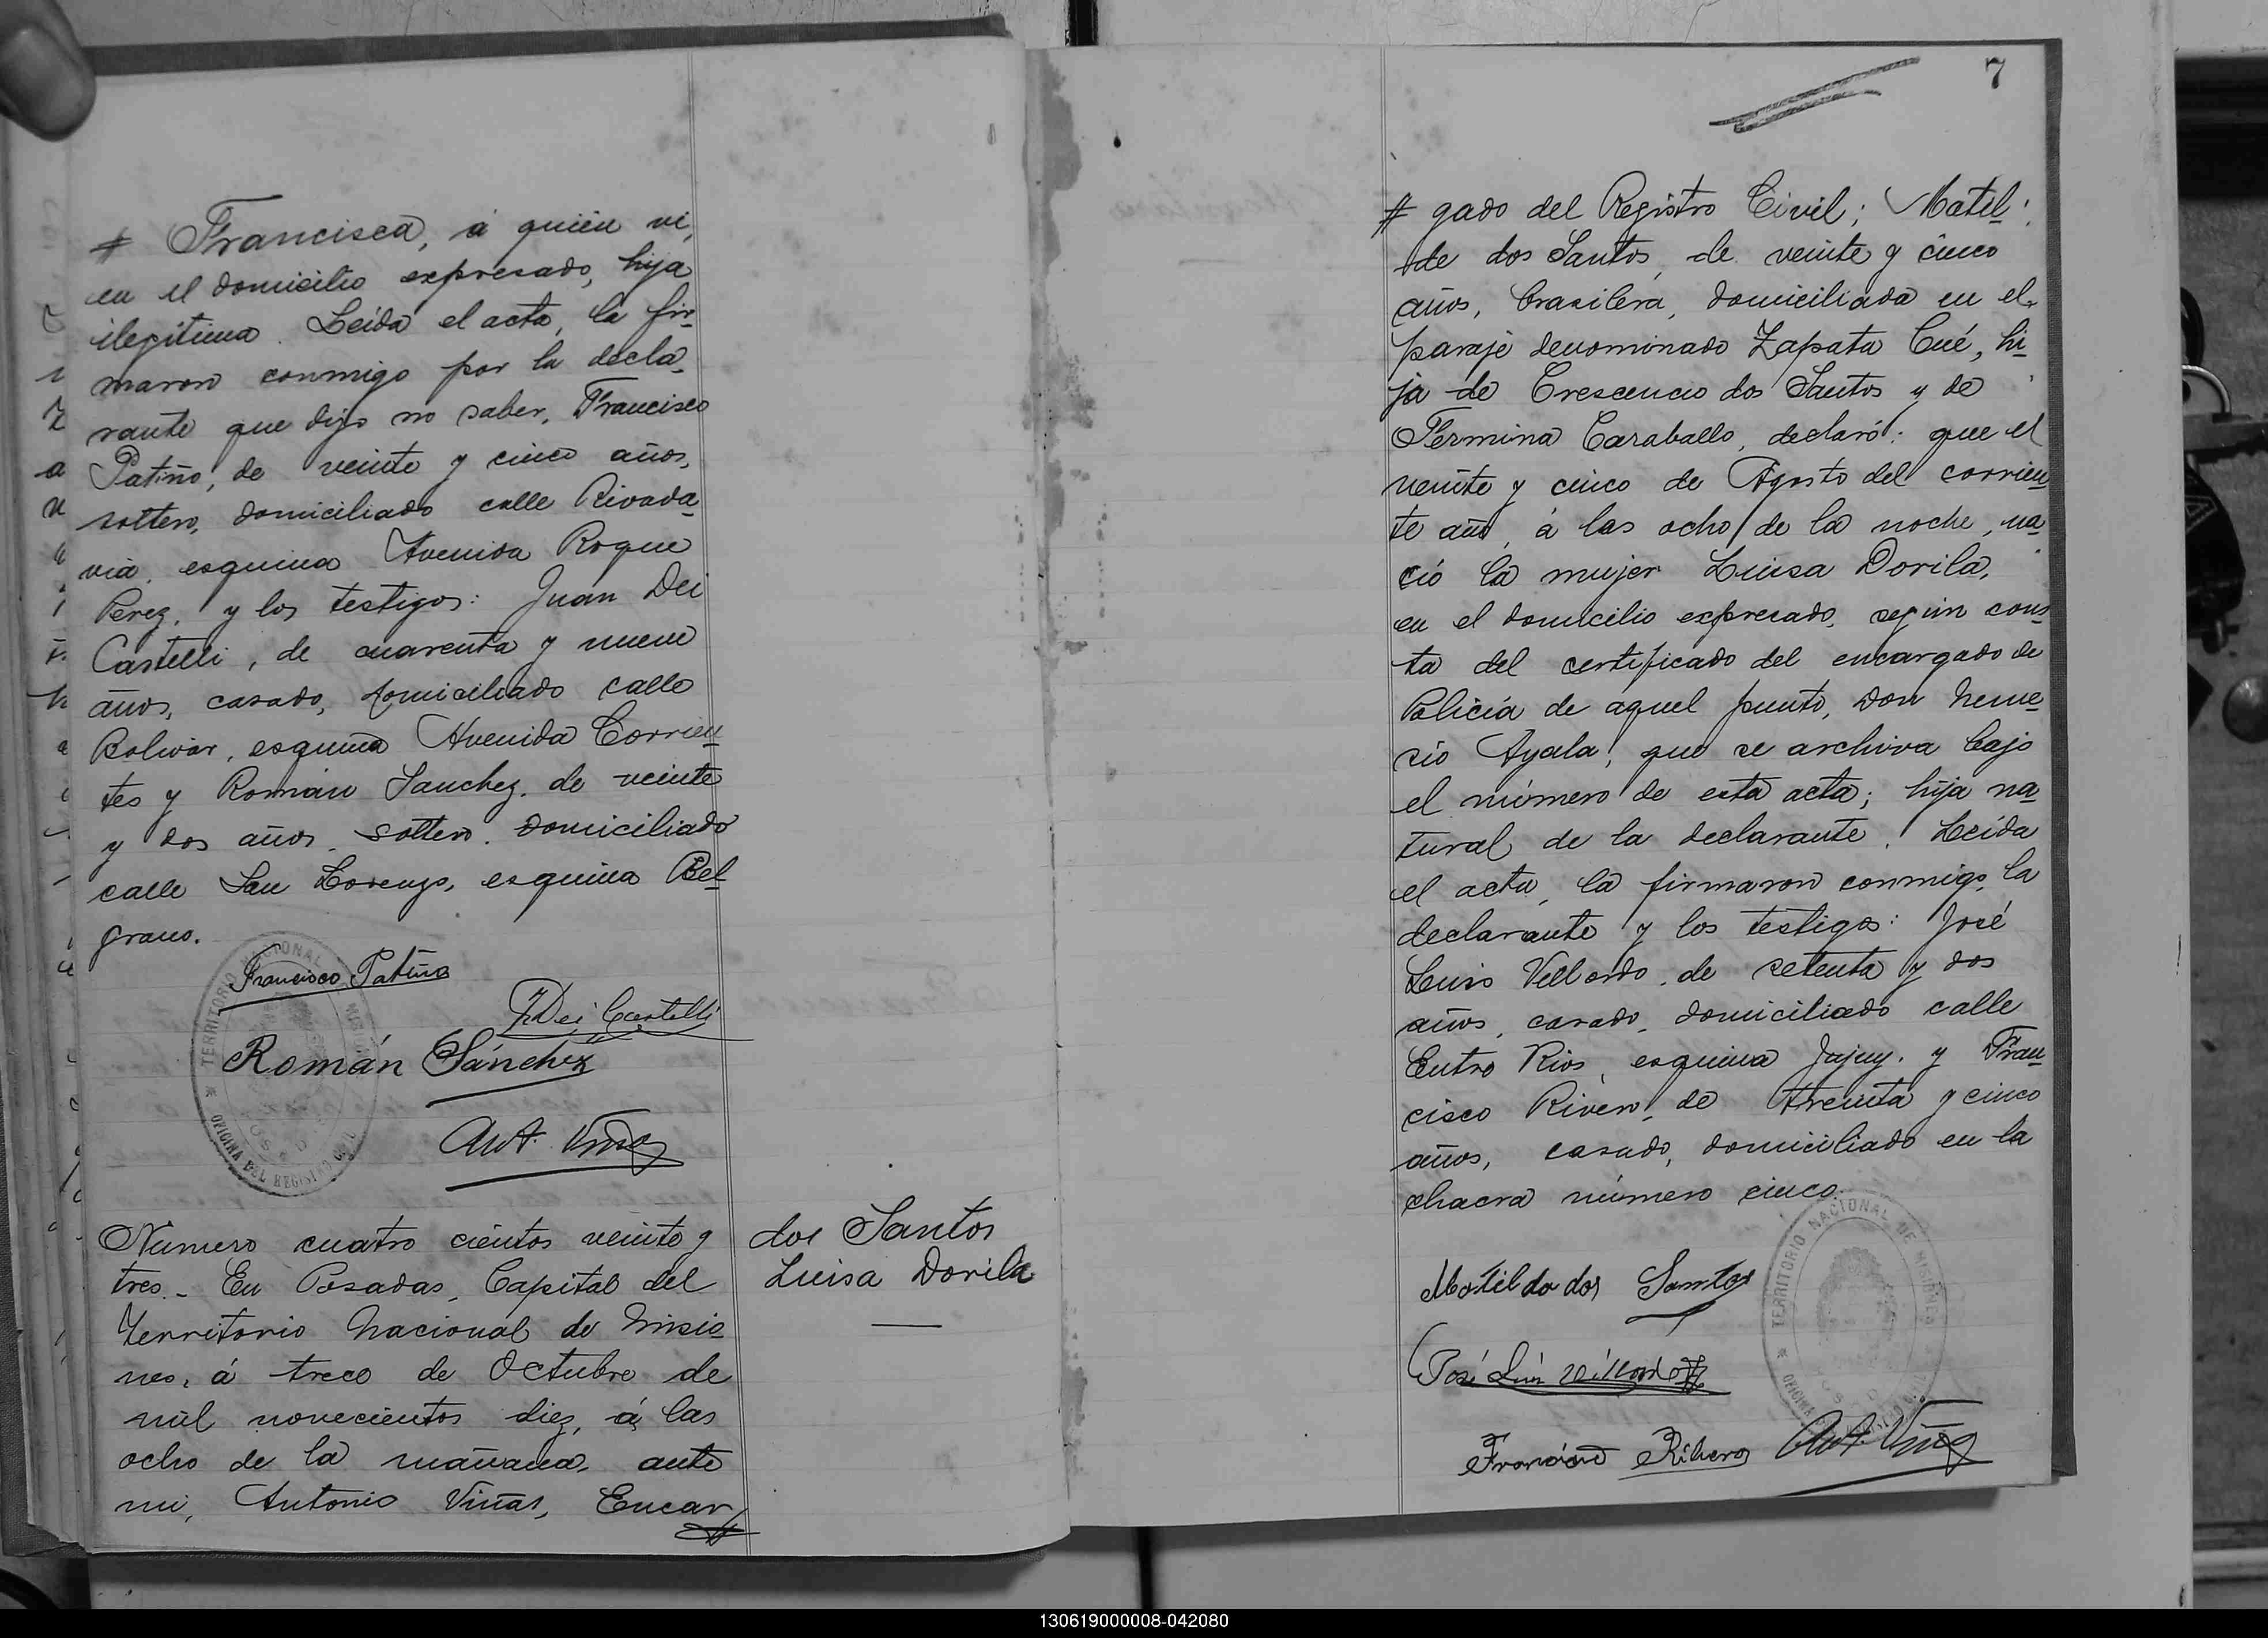 # Francisca, á quién vi,
en el domicilio expresado, hija
ilegítima. Leida el acta, la fir-
maron conmigo por la decla-
rante que dijo no saber, Francisco
Patiño, de veinte y cinco años,
soltero, domiciliado calle Rivada-
via, esquina Avenida Roque
Perez, y los testigos: Juan Dei
Castelli, de cuarenta y nueve
años, casado, domiciliado calle
Bolivar, esquina Avenida Corrien-
tes y Román Sanchez, de veinte
y dos años, soltero, domiciliado
calle San Lorenzo, esquina Bel-
grano.
Francisco Patiño
J Dei Castelli
Román Sánchez
Ant. Viñas
TERRITORIO NACIONAL DE MISIONES
OFICINA DEL REGISTRO CIVIL
Número cuatro cientos veinte y
tres.- En Posadas, Capital del
Territorio Nacional de Misio-
nes, á trece de Octubre de
mil novecientos diez, á las
ocho de la mañana, ante
mi, Antonio Viñas, Encar-
#
dos Santos
Luisa Dorila
7
# gado del Registro Civil; Matil-
de dos Santos, de veinte y cinco
años, brasilera, domiciliada en el
paraje denominado Zapata Cué, hi-
ja de Crescencio dos Santos y de
Fermina Caraballo, declaró: que el
veinte y cinco de Agosto del corrien-
te año, á las ocho de la noche, na-
ció la mujer Luisa Dorila,
en el domicilio expresado, según cons-
ta del certificado del encargado de
Policía de aquel punto, Don Neme-
sio Ayala, que se archiva bajo
el número de esta acta; hija na-
tural de la declarante. Leida
el acta, la firmaron conmigo, la
declarante y los testigos: José
Luis Vellordo, de setenta y dos
años, casado, domiciliado calle
Entre Rios, esquina Jujuy, y Fran-
cisco Rivero, de treinta y cinco
años, casado, domiciliado en la
chacra número cinco.
Matilda dos Santos
José Luis
Francisco Ribero
Ant. Viñas
TERRITORIO NACIONAL DE MISIONES
130619000008-042080